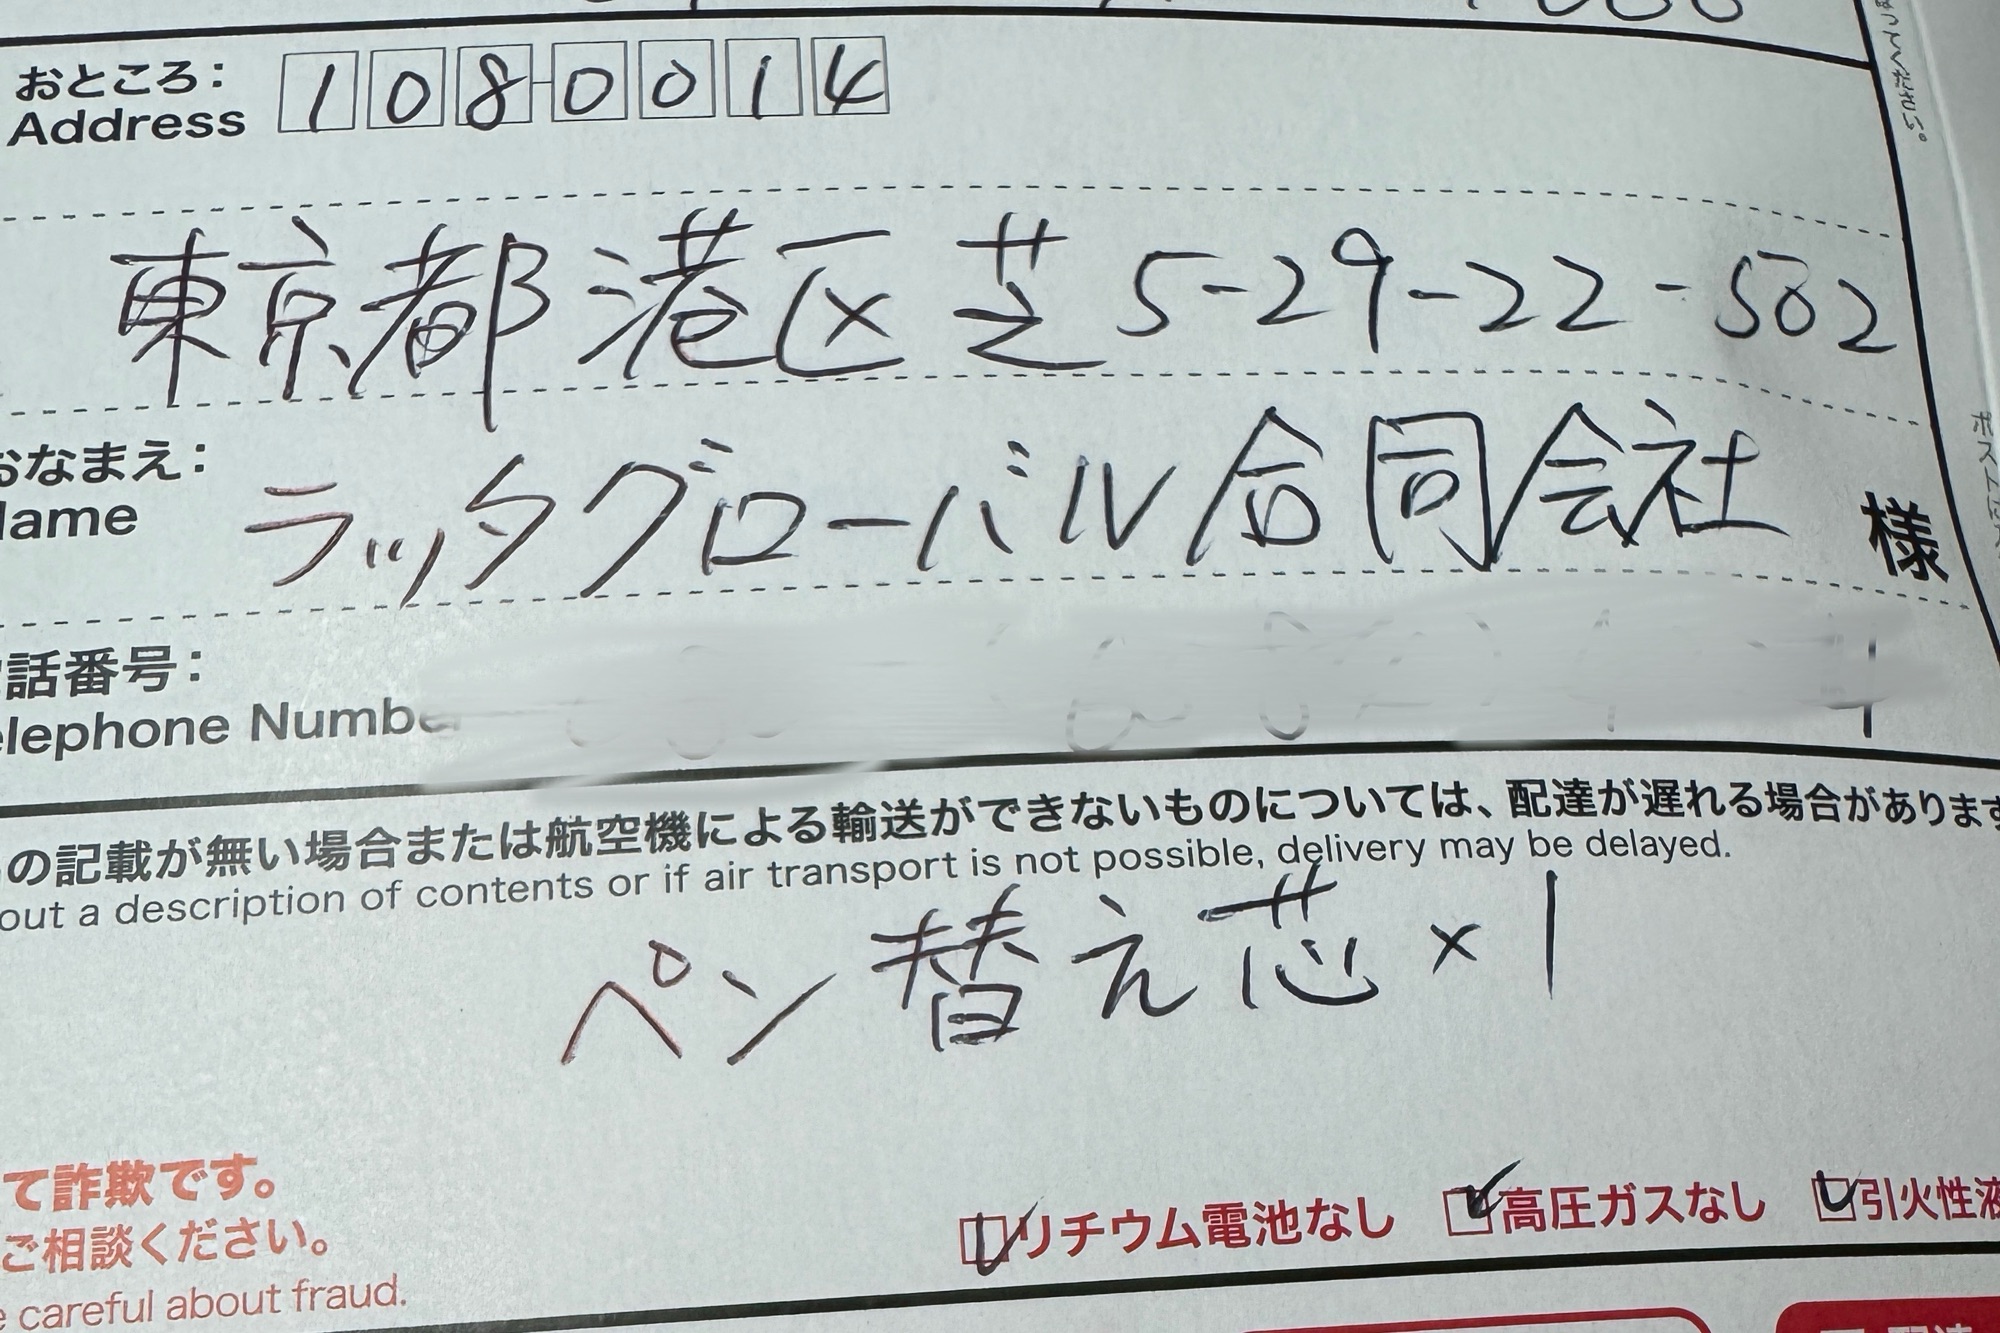 おところ：
Address
1080014
東京都港区芝5-29-22-502
おなまえ：
Name
ラッタグローバル合同会社
様
話番号：
elephone Numbe
の記載が無い場合または航空機による輸送ができないものについては、配達が遅れる場合があります
out a description of contents or if air transport is not possible, delivery may be delayed.
ペン替え芯×1
て詐欺です。
ご相談ください。
e careful about fraud.
リチウム電池なし 高圧ガスなし 引火性液